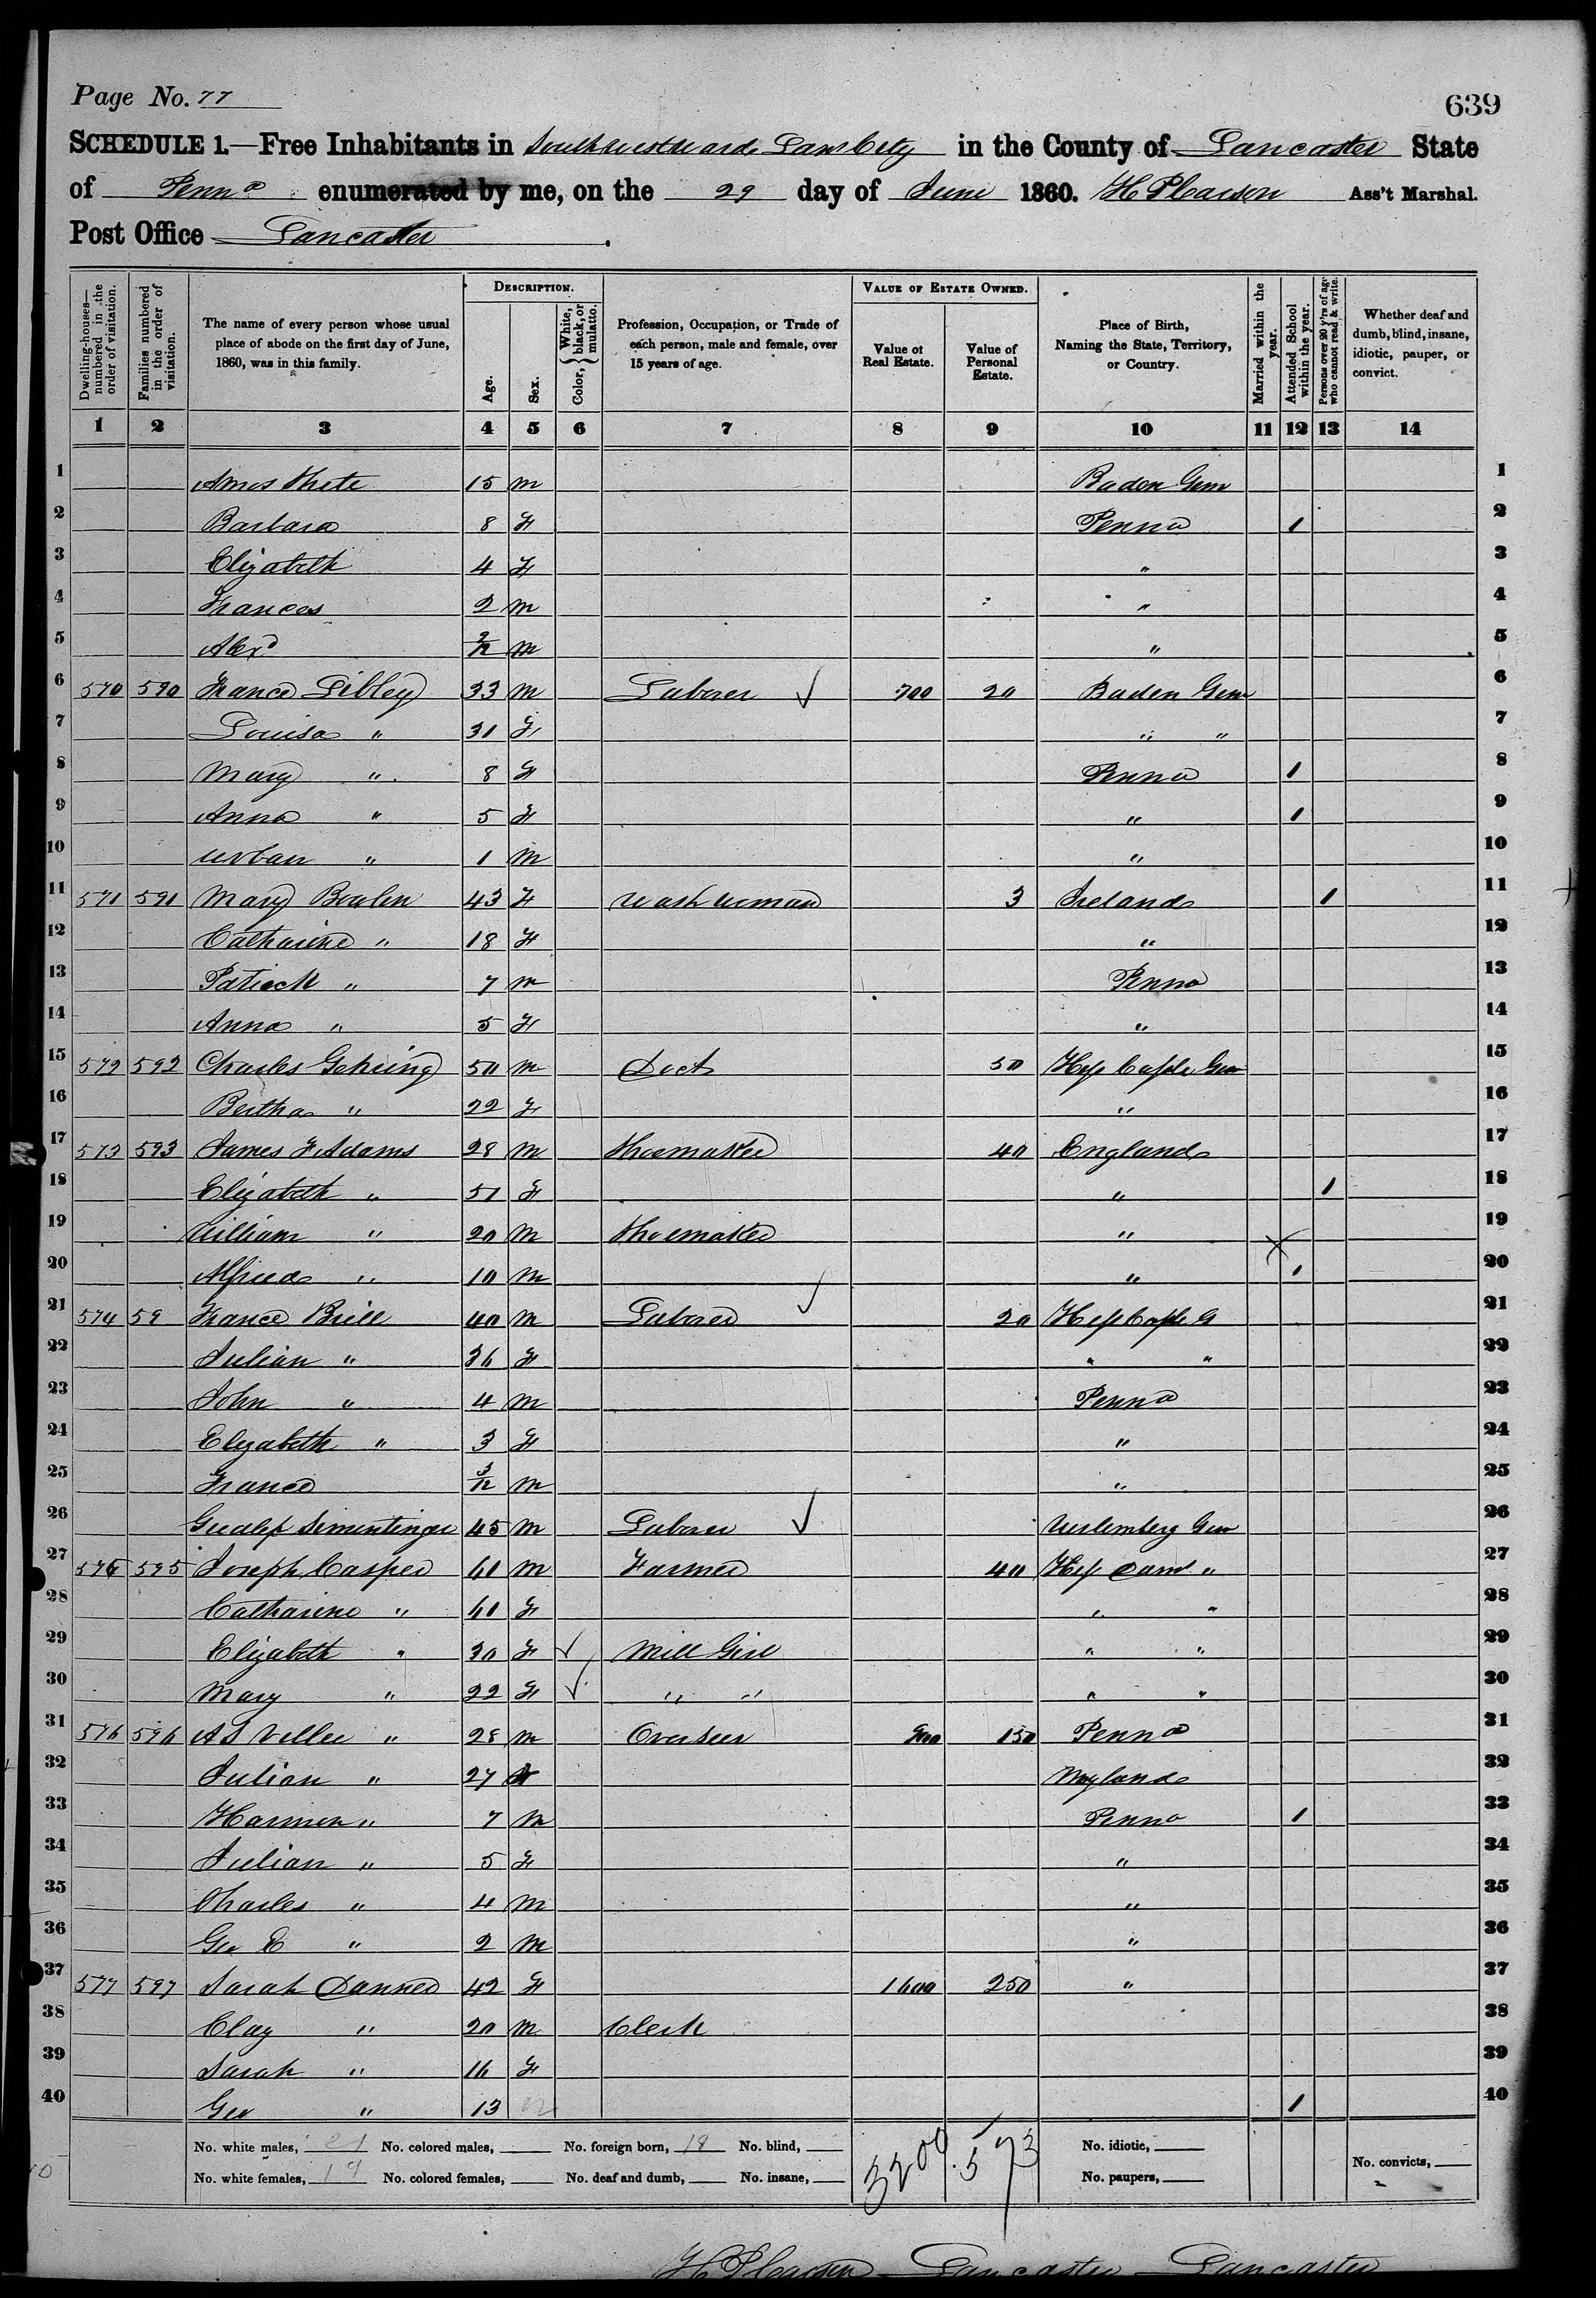 Page No. 77
639
SCHEDULE 1.—Free Inhabitants in Southwest Ward Lan City in the County of Lancaster State
of Penna enumerated by me, on the 29 day of June 1860. H Pearson Ass't Marshal.
Post Office Lancaster.
Dwelling-houses—numbered in the order of visitation.
Families numbered in the order of visitation.
The name of every person whose usual place of abode on the first day of June, 1860, was in this family.
DESCRIPTION.
Age.
Sex.
Color, { White, black, or mulatto.
Profession, Occupation, or Trade of each person, male and female, over 15 years of age.
VALUE OF ESTATE OWNED.
Value of Real Estate.
Value of Personal Estate.
Place of Birth, Naming the State, Territory, or Country.
Married within the year.
Attended School within the year.
Persons over 20 y'rs of age who cannot read & write.
Whether deaf and dumb, blind, insane, idiotic, pauper, or convict.
1 2 3 4 5 6 7 8 9 10 11 12 13 14
1 15 m Baden Gem 1
2 Barbara 8 F Penna 1 2
3 Elizabeth 4 F " 3
4 Frances 2 m " 4
5 Alexd 2/12 m " 5
6 570 590 France Libley 33 m Laborer 700 20 Baden Gem 6
7 Louisa " 31 F " " 7
8 Mary " 8 F Penna 1 8
9 Anna " 5 F " 1 9
10 Urban " 1 m " 10
11 571 591 Mary Boulen 43 F Wash Woman 3 Ireland 1 11
12 Catharine " 18 F " 12
13 Patrick " 7 m Penna 13
14 Anna " 5 F " 14
15 572 592 Charles Gehring 50 m Doct 50 Hess Cassle Gem 15
16 Bertha " 22 F " 16
17 573 593 James F Adams 28 m Shoemaker 40 England 17
18 Elizabeth " 51 F " 1 18
19 William " 20 m Shoemaker " 19
20 Alfred " 10 m " 1 20
21 574 59 France Brill 40 m Laborer 20 Hess Cassle G 21
22 Julian " 36 F " " 22
23 John " 4 m Penna 23
24 Elizabeth " 3 F " 24
25 France 3/12 m " 25
26 Simentinger 45 m Laborer Wertemberg Gem 26
27 575 595 Joseph Casper 61 m Farmer 40 Hess Darm " 27
28 Catharine " 61 F " " 28
29 Elizabeth " 30 F Mill Girl " " 29
30 Mary " 22 F " " " " 30
31 576 596 A S Villee " 28 m Overseer 900 150 Penna 31
32 Julian " 27 F Maryland 32
33 Harmon " 7 m Penna 1 33
34 Julian " 5 F " 34
35 Charles " 4 m " 35
36 Geo E " 2 m " 36
37 577 597 Sarah Danner 42 F 1600 250 " 37
38 Clay " 20 m Clerk 38
39 Sarah " 16 F 39
40 Geo " 13 m 1 40
No. white males, 21 No. colored males, No. foreign born, 18 No. blind, 3200 573 No. idiotic,
No. white females, 19 No. colored females, No. deaf and dumb, No. insane, No. paupers, No. convicts,
H Pearson Lancaster Lancaster